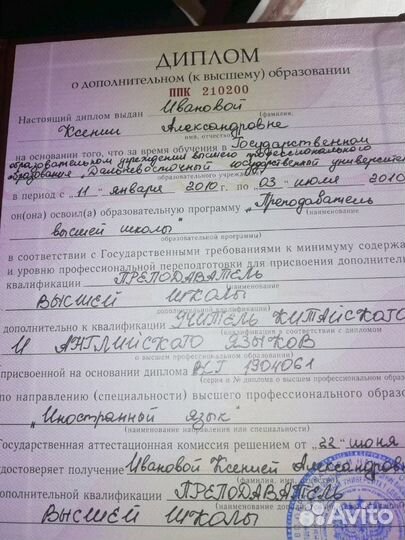 ДИПЛОМ
о дополнительном (к высшему) образовании
ППК 210200
Настоящий диплом выдан Ивановой
(фамилия,
Ксении Александровне
имя, отчество)
на основании того, что за время обучения в Государственном
образовательном учреждении высшего профессионального
образования "Дальневосточный государственный университет"
образовательного учреждения)
в период с „11“ января 2010 г. по „03“ июля 2010
он(она) освоил(а) образовательную программу "Преподаватель
(наименование
высшей школы"
образовательной программы)
в соответствии с Государственными требованиями к минимуму содержа
и уровню профессиональной переподготовки для присвоения дополнител
квалификации ПРЕПОДАВАТЕЛЬ
ВЫСШЕЙ ШКОЛЫ
дополнительной квалификации)
дополнительно к квалификации УЧИТЕЛЬ КИТАЙСКОГО
(квалификация в соответствии с дипломом
И АНГЛИЙСКОГО ЯЗЫКОВ
о высшем профессиональном образовании)
присвоенной на основании диплома 1904061
(серия и № диплома о высшем профессиональном образ
по направлению (специальности) высшего профессионального образ
"Иностранный язык"
(наименование направления или специальности)
Государственная аттестационная комиссия решением от „22“ июня
удостоверяет получение Ивановой Ксенией Александровн
(фамилия, имя, отчество)
дополнительной квалификации ПРЕПОДАВАТЕЛЬ
ВЫСШЕЙ ШКОЛЫ
Avito